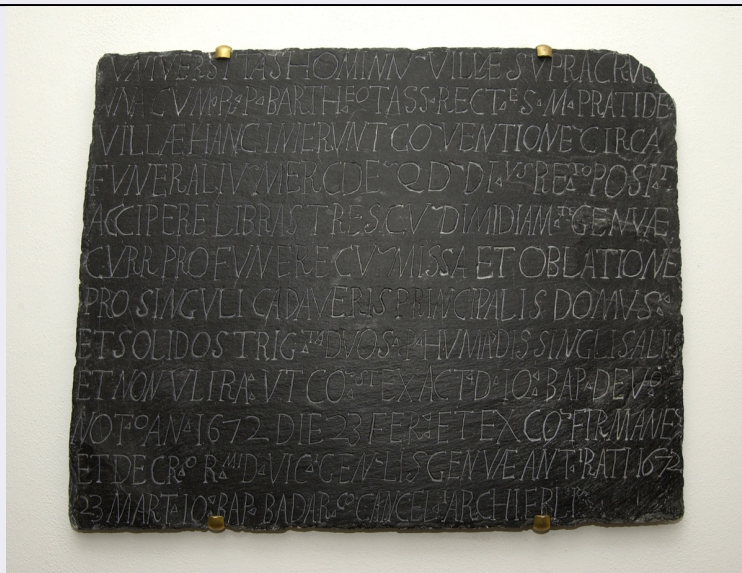 VNIVERSITAS HOMINŨ VILLÆ SVPRACRVC
VNA CVM R P BARTH^EO TASS RECT^E S M PRATI DE
VILLÆ HANC INIERVNT COVENTIONE CIRCA
FVNERALIV MERCDE QD DI^VS RE POSI
ACCIPERE LIBRAS TRES CV DIMIDIAM GENVÆ
CVRR PRO FVNERE CV MISSA ET OBLATIONE
PRO SINGVLI CADAVERIS PRINCIPALIS DOMVS
ET SOLIDOS TRIG^TA DVOS HVMADIS SINGLIS ALIIS
ET NON VLTRA VT CO^ST EX ACT D IO BAP DE V^O
NOT^O AN 1672 DIE 23 FER ET EX CO FIRMANE
ET DECR^O R^MI D VIC GEN^LIS GENVÆ ANT RATI 1672
23 MART IO BAP BADAR^CO CANCEL ARCHIEPI